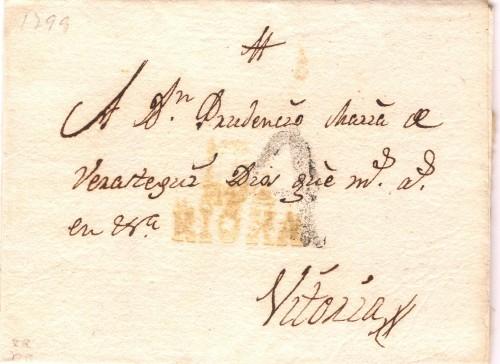 1799
A Dn Prudencio Maria de
Verastegui Dios gue ms. as.
en
Vitoria